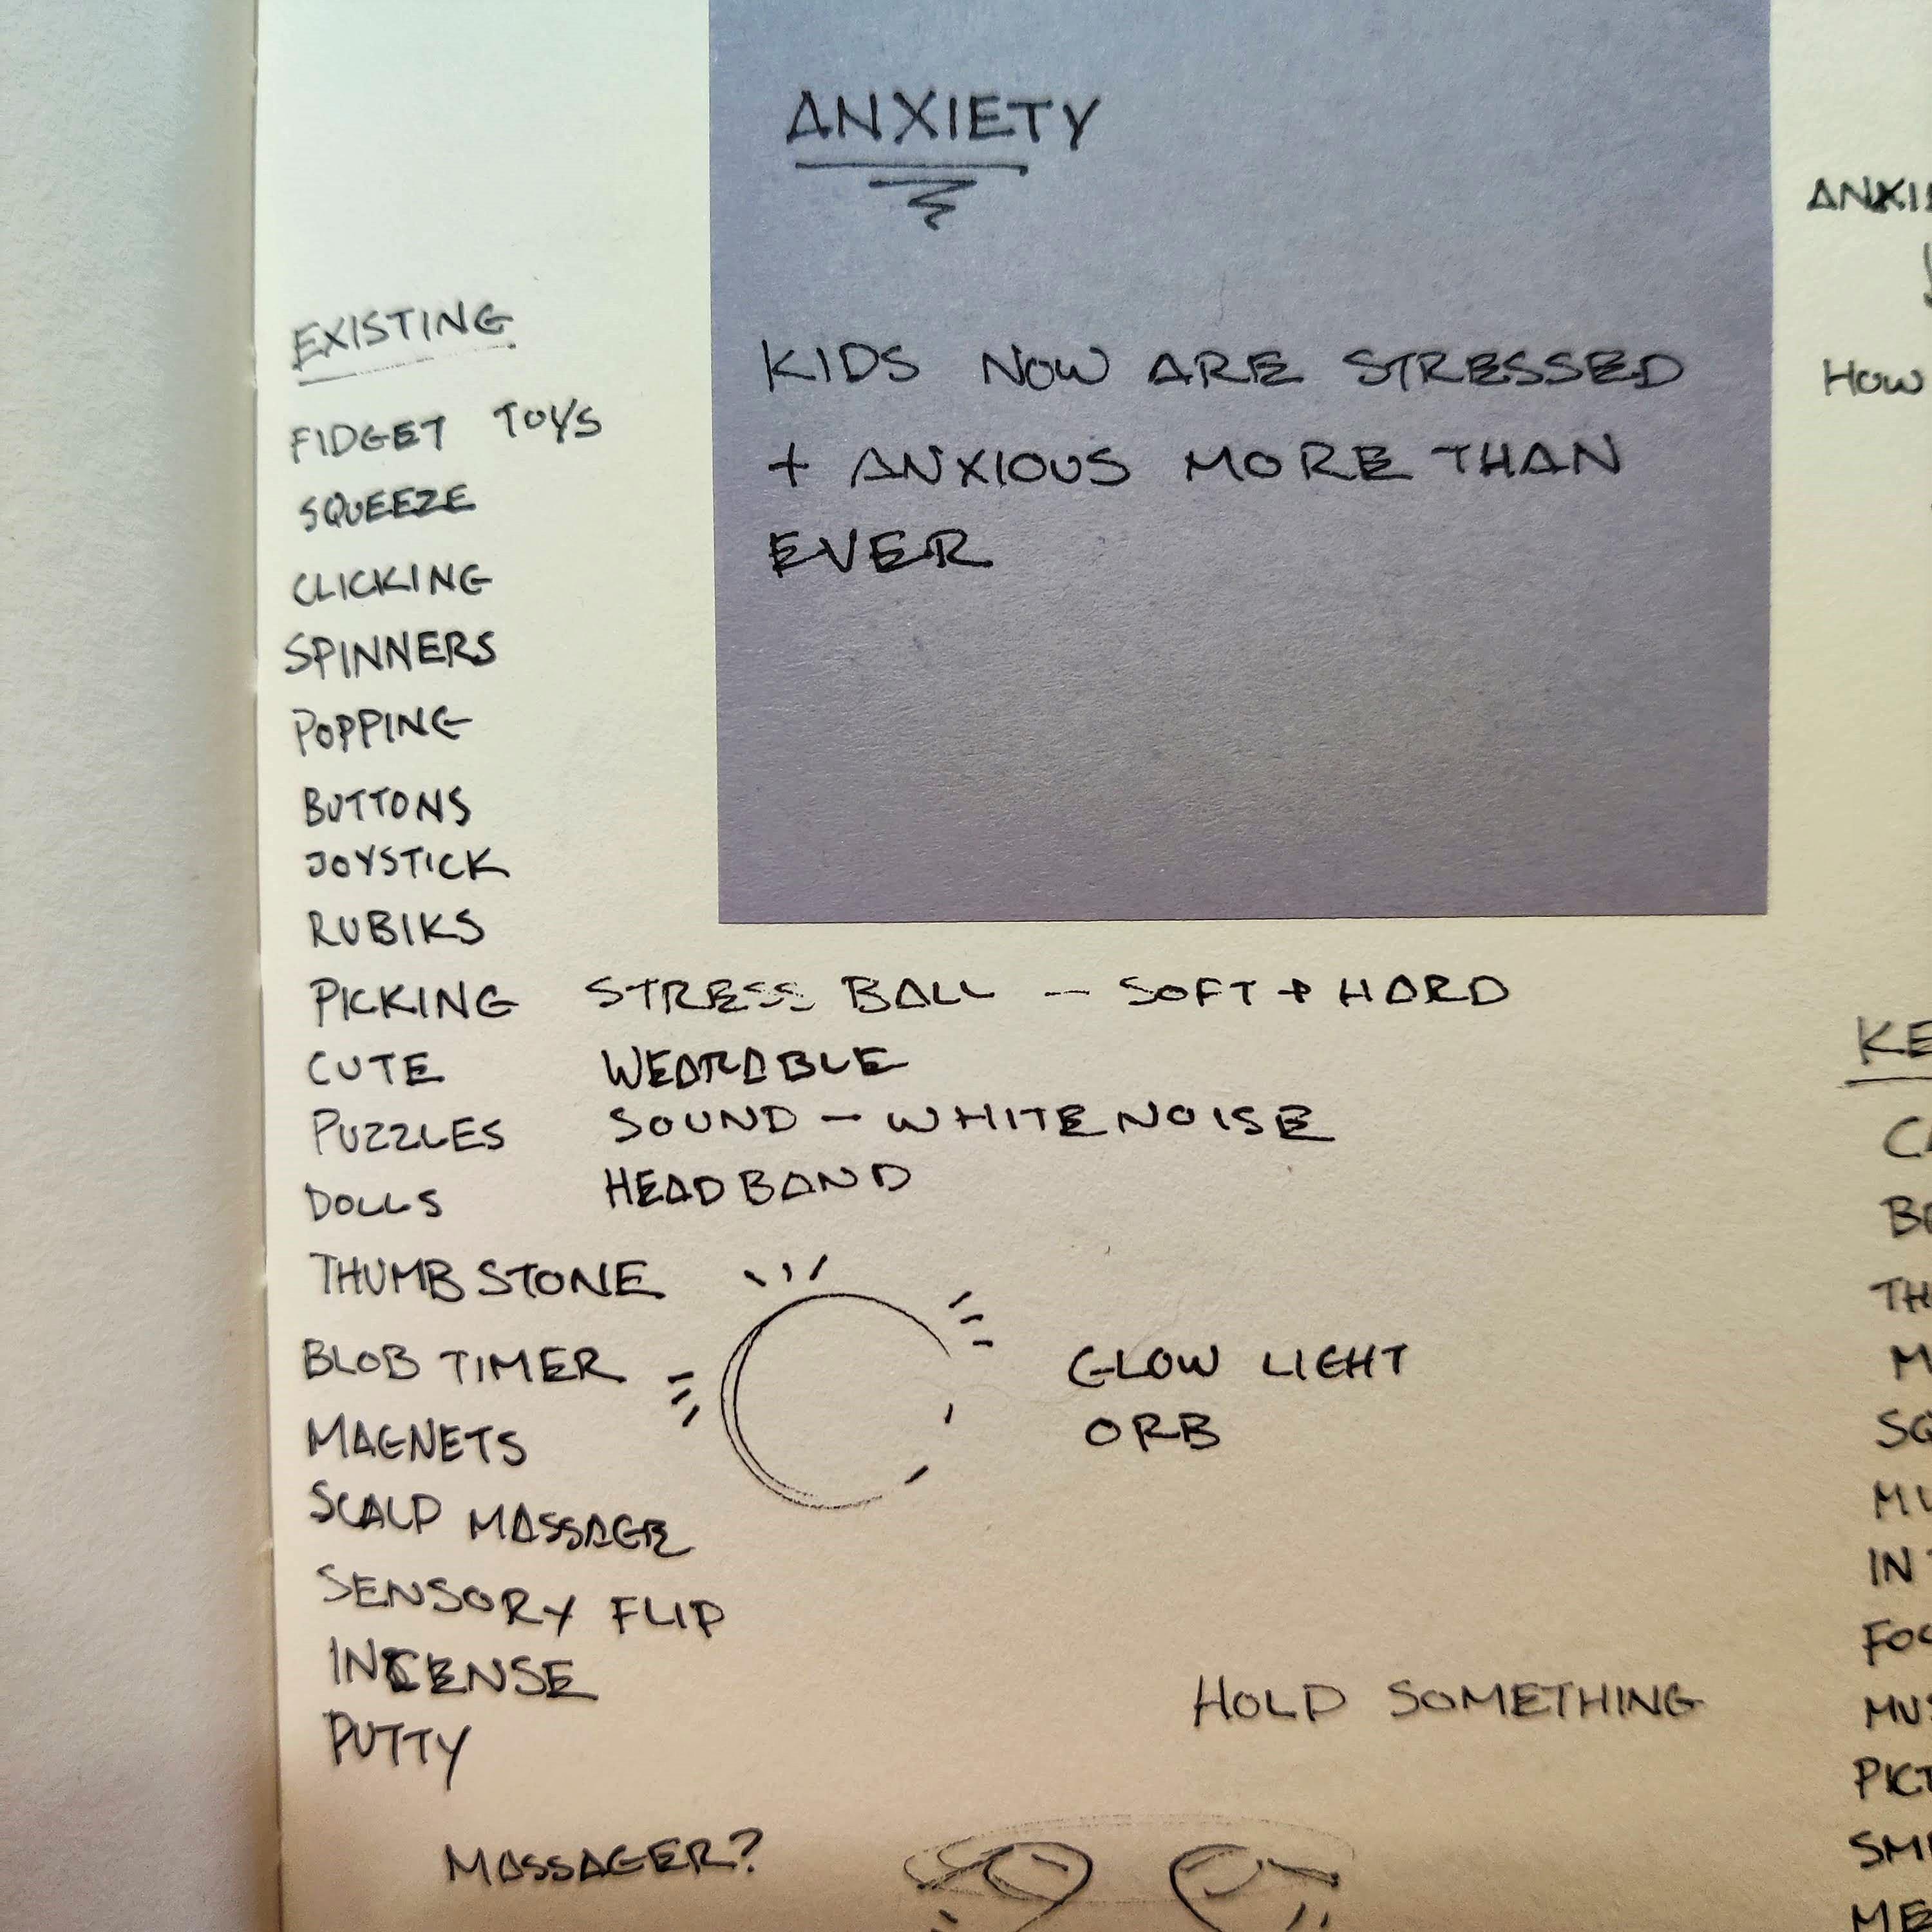 ANXIETY
KIDS NOW ARE STRESSED
+ ANXIOUS MORE THAN
EVER
EXISTING
FIDGET TOYS
SQUEEZE
CLICKING
SPINNERS
POPPING
BUTTONS
JOYSTICK
RUBIKS
PICKING
CUTE
PUZZLES
DOLLS
THUMB STONE
BLOB TIMER
MAGNETS
SCALP MASSAGE
SENSORY FLIP
INCENSE
PUTTY
STRESS BALL - SOFT + HARD
WEARABLE
SOUND - WHITE NOISE
HEADBAND
GLOW LIGHT
ORB
HOLD SOMETHING
MASSAGER?
HOW
IN